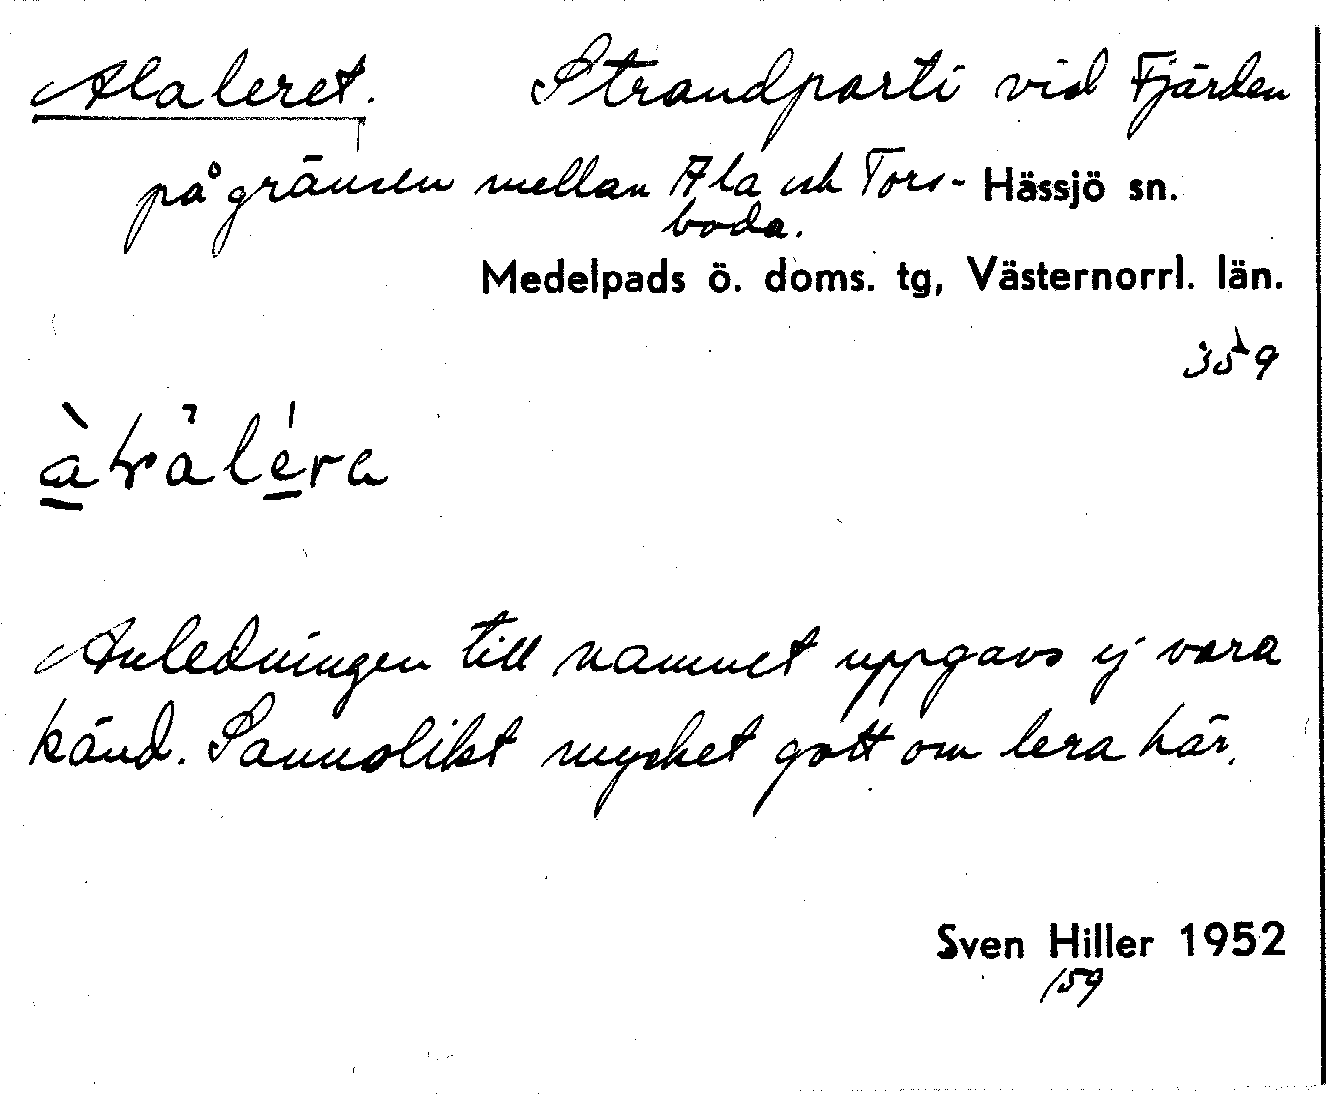 Alaleret. Strandparti vid Fjärden
på gränsen mellan Ala och Tors- Hässjö sn.
boda.
Medelpads ö. doms. tg, Västernorrl. län.
359
Anledningen till namnet uppgavs ej vara
känd. Sannolikt mycket gott om lera här.
Sven Hiller 1952
159